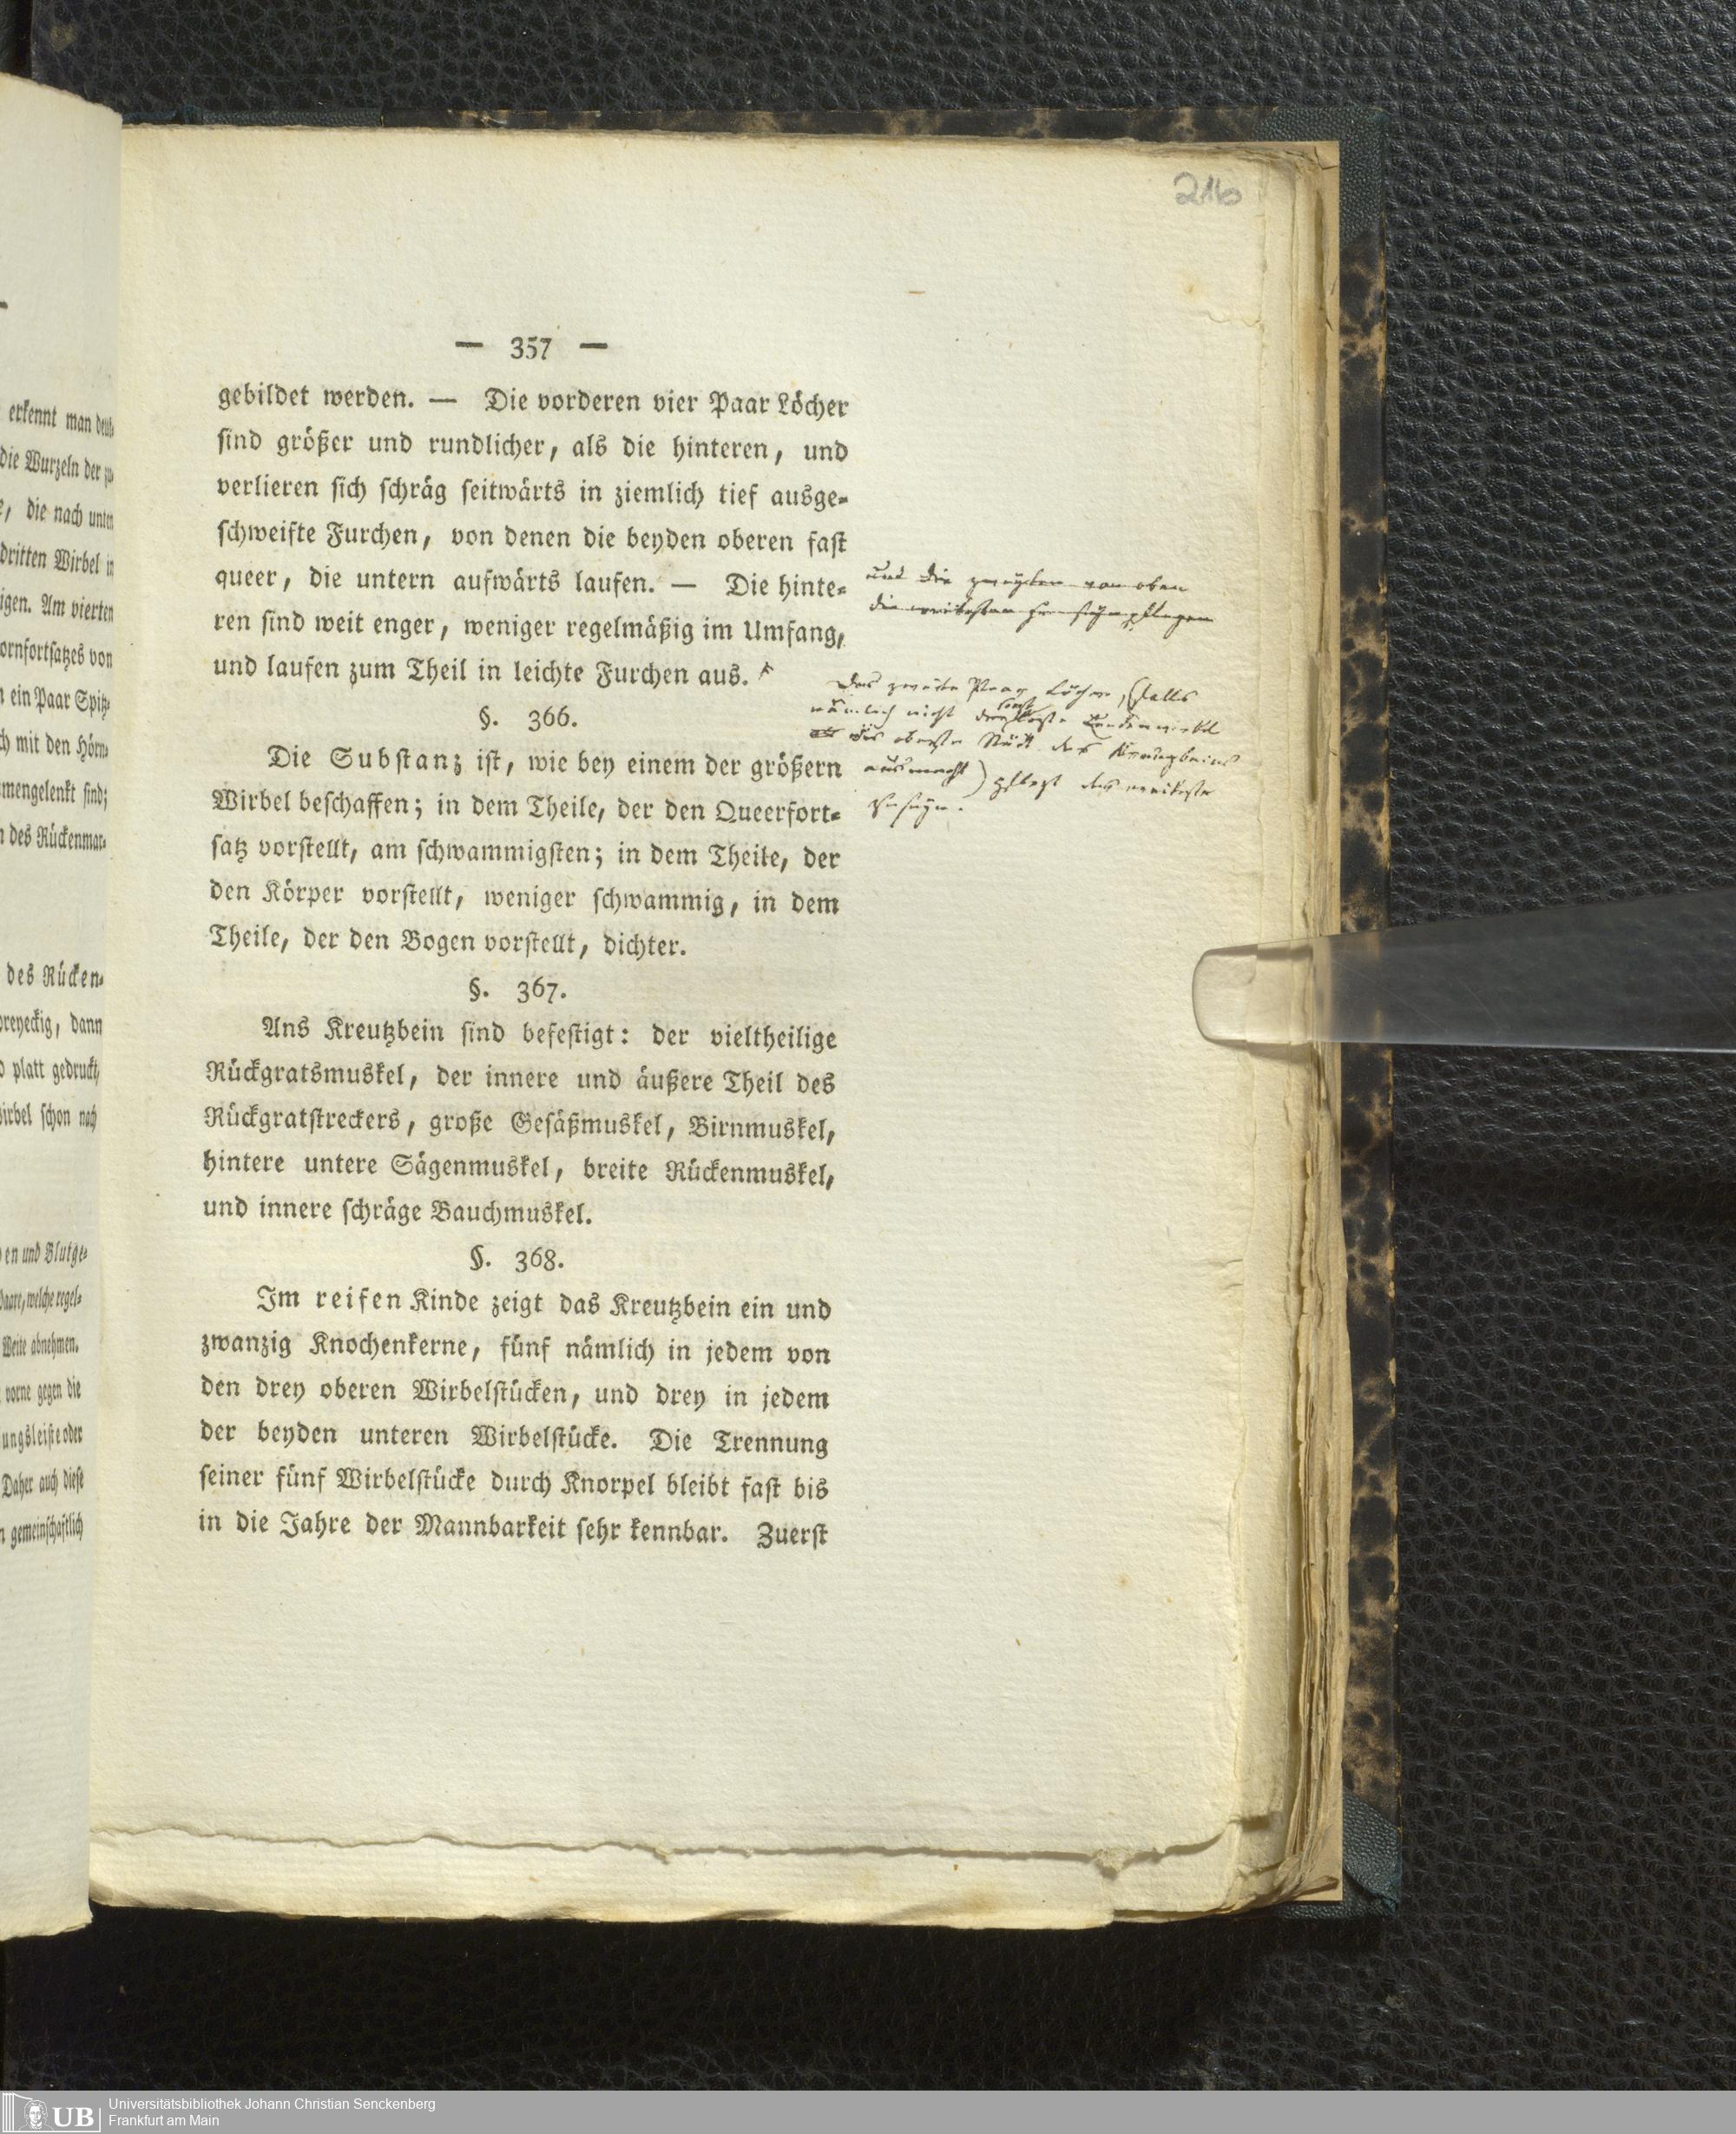 216
— 357 —
gebildet werden. — Die vorderen vier Paar Löcher
ſind größer und rundlicher, als die hinteren, und
verlieren ſich ſchräg ſeitwärts in ziemlich tief ausge-
ſchweifte Furchen, von denen die beyden oberen faſt
queer, die untern aufwärts laufen. — Die hinte-
ren ſind weit enger, weniger regelmäßig im Umfang,
und laufen zum Theil in leichte Furchen aus.
und die zweyten von oben
die weitesten zu seyn pflegen
Das zweite Paar Löcher, (falls
nämlich nicht der sonst letzte Lendenwirbel
das oberste Stück des Kreuzbeins
ausmacht) pflegt das weiteste
zu seyn.
§. 366.
Die Subſtanz iſt, wie bey einem der größern
Wirbel beſchaffen; in dem Theile, der den Queerfort-
ſatz vorſtellt, am ſchwammigſten; in dem Theile, der
den Körper vorſtellt, weniger ſchwammig, in dem
Theile, der den Bogen vorſtellt, dichter.
§. 367.
Ans Kreutzbein ſind befeſtigt: der vieltheilige
Rückgratsmuskel, der innere und äußere Theil des
Rückgratſtreckers, große Geſäßmuskel, Birnmuskel,
hintere untere Sägenmuskel, breite Rückenmuskel,
und innere ſchräge Bauchmuskel.
§. 368.
Im reifen Kinde zeigt das Kreutzbein ein und
zwanzig Knochenkerne, fünf nämlich in jedem von
den drey oberen Wirbelſtücken, und drey in jedem
der beyden unteren Wirbelſtücke. Die Trennung
ſeiner fünf Wirbelſtücke durch Knorpel bleibt faſt bis
in die Jahre der Mannbarkeit ſehr kennbar. Zuerſt
erkennt man
die Wurzeln der
die nach unten
dritten Wirbel
igen. Am vierten
ornfortſatzes von
ein Paar Spitz-
mit den Hörn-
mengelenkt ſind;
des Rückenmar-
des Rücken-
dreyeckig, dann
platt gedruckt,
irbel ſchon nach
en und Blutge-
Paare, welche regel-
Weite abnehmen.
vorne gegen die
ungsleiſte oder
Daher auch dieſe
gemeinſchaftlich
UB
Universitätsbibliothek Johann Christian Senckenberg
Frankfurt am Main